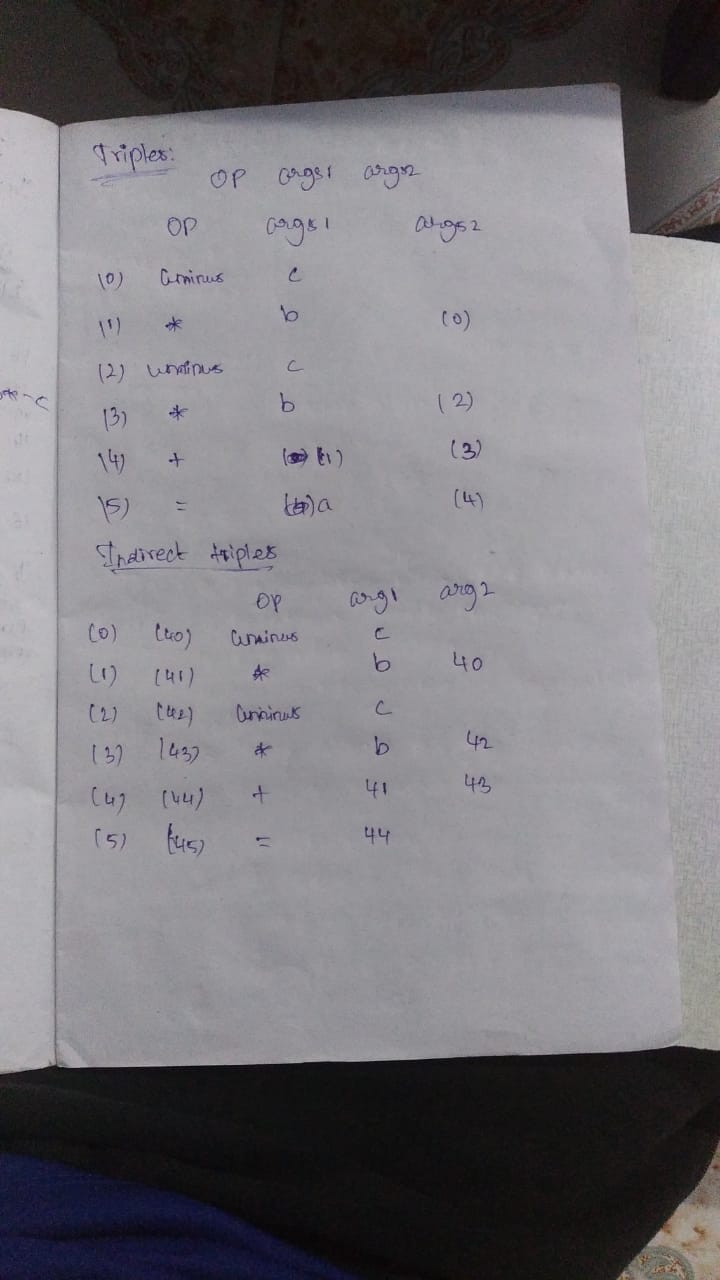 Triples:
OP args1 args2
OP args1 args2
(0) uminus c
(1) * b (0)
(2) uminus c
(3) * b (2)
(4) + (1) (3)
(5) = a (4)
Indirect triples
OP arg1 arg2
(0) (40) uminus c
(1) (41) * b 40
(2) (42) uminus c
(3) (43) * b 42
(4) (44) + 41 43
(5) (45) = 44